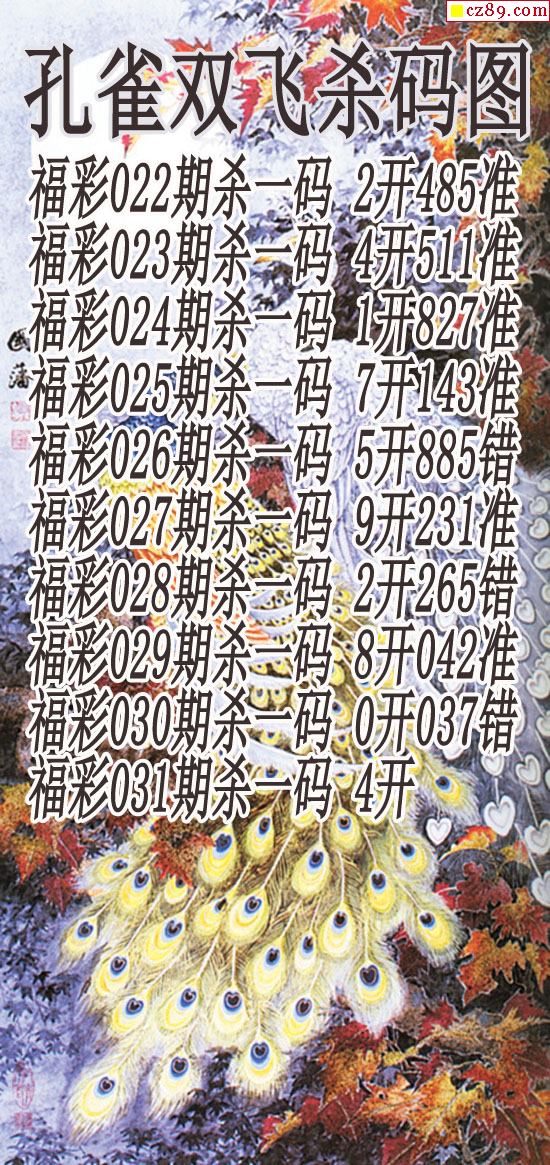 cz89.com
孔雀双飞杀码图
福彩022期杀一码 2开485准
福彩023期杀一码 4开511准
福彩024期杀一码 1开827准
福彩025期杀一码 7开143准
福彩026期杀一码 5开885错
福彩027期杀一码 9开231准
福彩028期杀一码 2开265错
福彩029期杀一码 8开042准
福彩030期杀一码 0开037错
福彩031期杀一码 4开